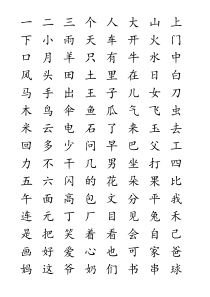 一 二 三 个 人 大 山 上
一 小 雨 天 车 开 火 门
下 月 羊 只 有 牛 水 中
口 头 田 王 里 在 日 白
风 手 出 土 子 儿 女 刀
马 鸟 伞 鱼 瓜 气 飞 虫
木 云 电 石 了 来 玉 去
米 多 少 问 早 巴 又 工
回 不 千 几 男 父 打 四
力 六 闪 的 花 坐 朵 果 比
五 面 高 包 文 分 平 我
午 元 丁 厂 目 见 兔 禾
连 把 笑 着 看 会 自 己
是 好 爱 心 也 可 家 爸
画 这 爷 奶 们 书 串 球
妈